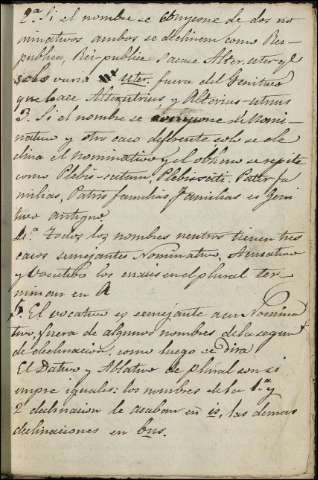 2.ª Si el nombre se compone de dos no-
minativos ambos se declinan como Res-
publica, Rei-publice sacase Alter-uter q.e
solo varia uter, fuera del Genitivo
que hace Alterutrius y Alterius-utrius
3.ª Si el nombre se compone de Nomi-
nativo y otro caso diferente solo se de-
clina el nominativo y el obliquo se repite
como Plebis-scitum, Plebiscita. Pater fa-
milias, Patris familias, familias es Geni-
tivo antiguo
4.ª Todos los nombres neutros tienen tres
casos semejantes Nominativo, Acusativo
y Vocativo los cuales en el plural ter-
minan en A
5.ª El vocativo es semejante a un Nomina-
tivo, fuera de algunos nombres de la segun-
da declinacion, como luego se dirá
El Dativo y Ablativo de plural son si-
empre iguales: los nombres de la 1.ª y
2 declinacion le acaban en is, las demas
declinaciones en bus.